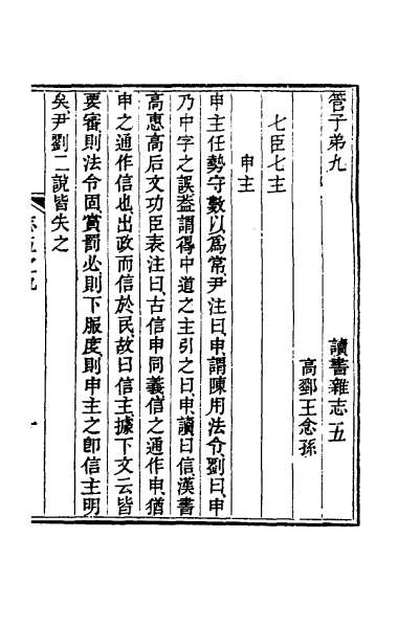 管子弟九
讀書雜志五
高郵王念孫
七臣七主
申主
申主任勢守數以爲常尹注曰申謂陳用法令劉曰申
乃中字之誤葢謂得中道之主引之曰申讀曰信漢書
高惠高后文功臣表注曰古信申同義信之通作申猶
申之通作信也出政而信於民故曰信主據下文云皆
要審則法令固賞罰必則下服度則申主之卽信主明
矣尹劉二說皆失之
志五之九
一